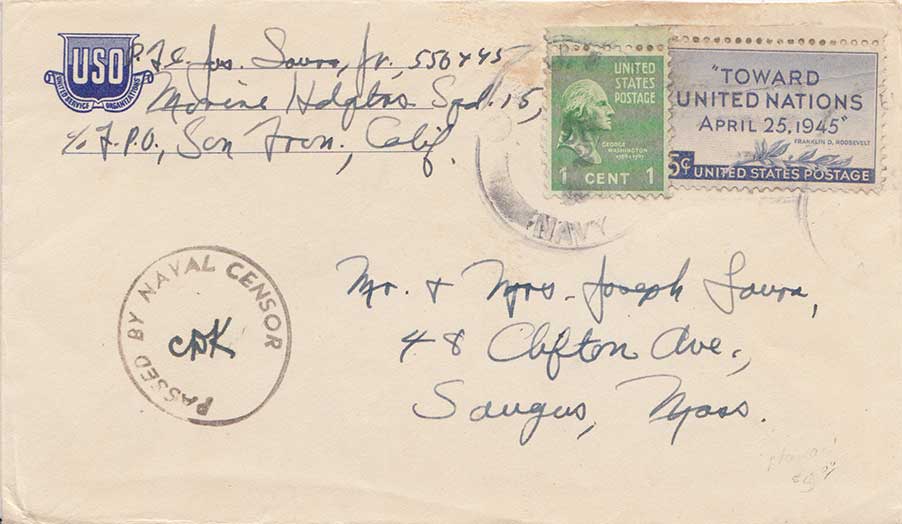 USO
UNITED SERVICE ORGANIZATIONS
Jos. Saura, Jr. 556445
Marine Hdqtrs Sqd. 15,
c/o F.P.O., San Fran., Calif.
UNITED STATES POSTAGE
GEORGE WASHINGTON
1 CENT 1
"TOWARD
UNITED NATIONS
APRIL 25, 1945"
FRANKLIN D. ROOSEVELT
5¢ UNITED STATES POSTAGE
NAVY
PASSED BY NAVAL CENSOR
CDK
Mr. & Mrs. Joseph Saura,
48 Clifton Ave.,
Saugus, Mass.